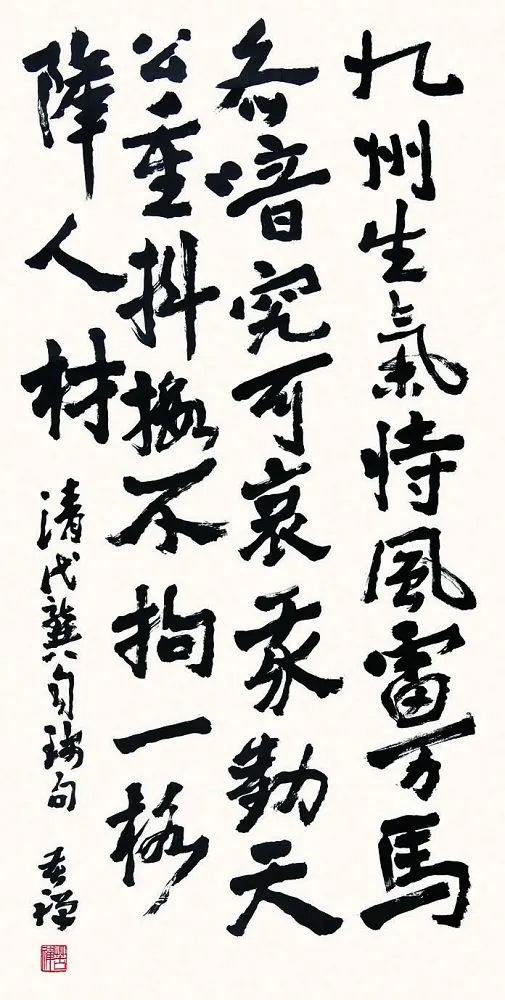 九州生氣恃風雷万馬
齐喑究可哀我勸天
公重抖擻不拘一格
降人材
清代龔自珍句 苦禪